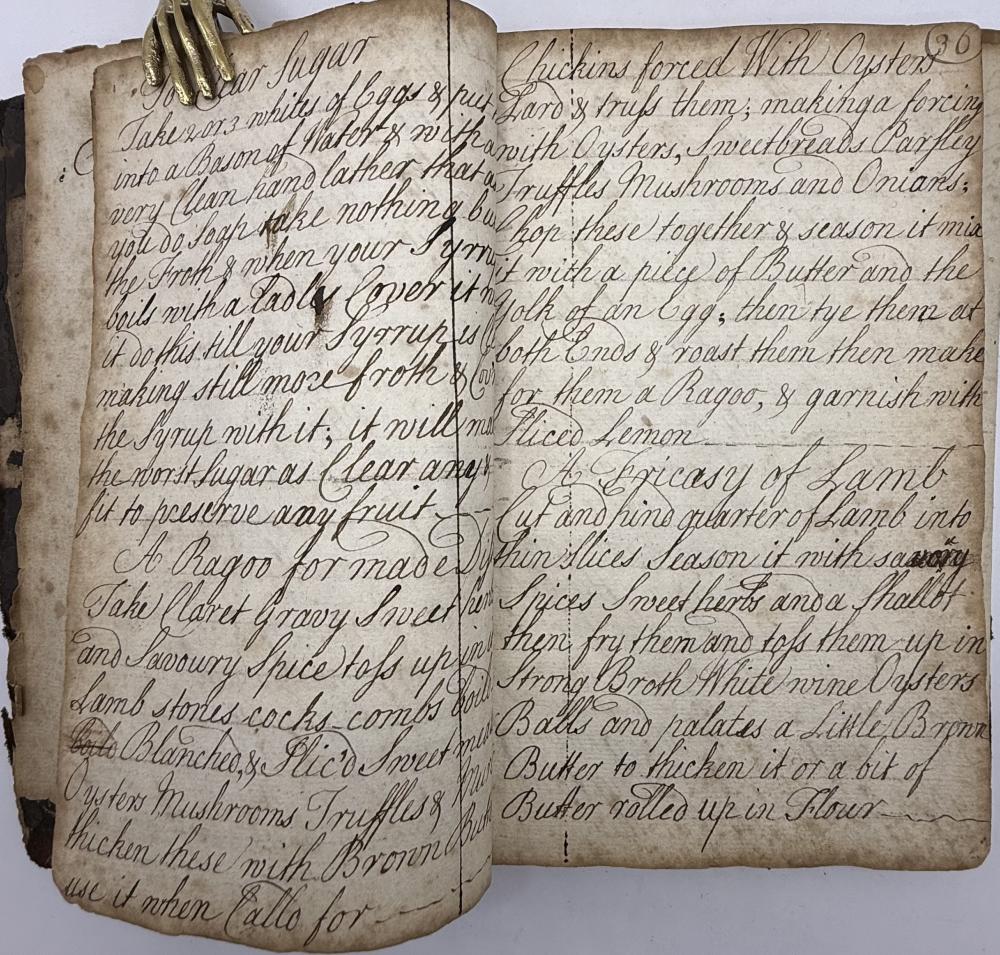 Sugar
Take 2 or 3 whites of Eggs & put
into a Bason of Water & with a
very Clean hand lather that as
you do Soap take nothing but
the Froth & when your Syrru
boils with a Ladle Cover it
it do this till your Syrrup is
making still more froth &
the Syrup with it; it will ma
the worst Sugar as Clear any &
fit to preserve any fruit
A Ragoo for made Dis
Take Claret Gravy Sweet her
and Savoury Spice toss up in
Lamb stones cocks combs boild
Blanched, & Slic'd Sweet
Oysters Mushrooms Truffles &
thicken these with Brown Butt
use it when Calld for
30
Chickins forced With Oysters
Lard & truss them; making a forcing
with Oysters, Sweetbreads Parsley
Truffles Mushrooms and Onians;
Chop these together & season it mix
it with a piece of Butter and the
Yolk of an Egg; then tye them at
both Ends & roast them then make
for them a Ragoo, & garnish with
Sliced Lemon
A Fricasy of Lamb
Cut and hind quarter of Lamb into
thin slices Season it with savory
Spices Sweet herbs and a Shallot
then fry them and toss them up in
Strong Broth White wine Oysters
Balls and palates a Little Brown
Butter to thicken it or a bit of
Butter rolled up in Flour